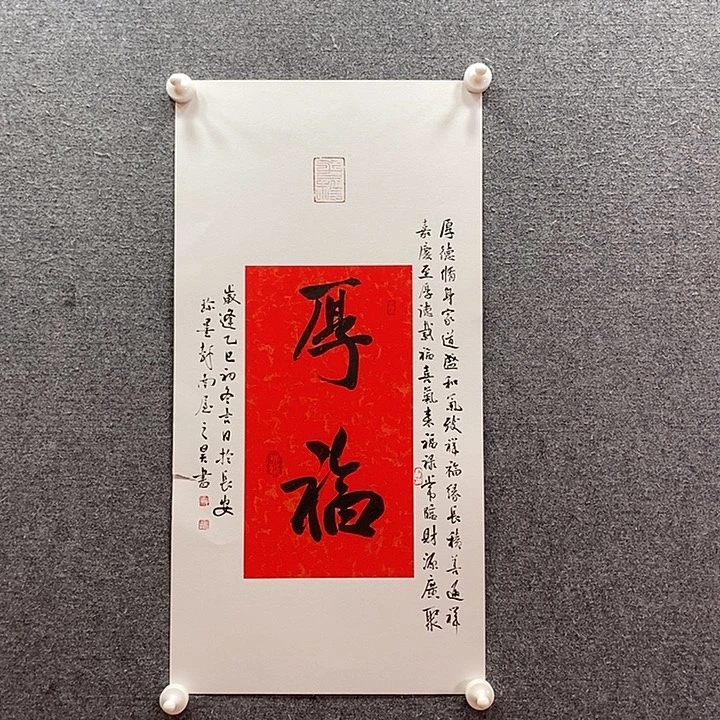 厚福
厚德脩身家道盛和氣致祥福緣長積善祥
嘉慶至厚德載福喜氣来福禄常臨財源廣聚
歲逢乙巳初冬吉日於長安
墨軒南屋之昊書